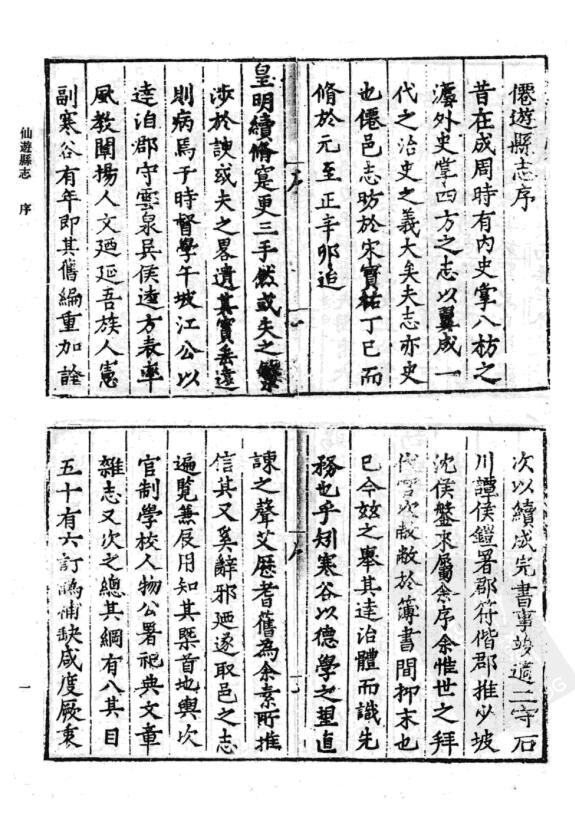 僊遊縣志序
昔在成周時有内史掌八枋之
灋外史掌四方之志以翼成一
代之治史之義大矣夫志亦史
也僊邑志昉於宋寳祐丁巳而
脩於元至正辛卯迨
序
皇明續脩寔更三手然或失之繁
涉於諛或失之畧遺其實遠
則病焉于時督學午坡江公以
逹泊郡守雲泉吳侯逵方表率
風教闡揚人文廼延吾族人憲
副寒谷有年即其舊編重加詮
次以續成完書事竣適二守石
川譚侯鎧署郡符偕郡推少坡
沈侯盤來屬余序余惟世之拜
敝敝於簿書間抑末也
已今兹之舉其逹治體而識先
務也乎矧寒谷以德學之望直
序
諫之聲艾歷耆舊為余素所推
信其又奚辭邪廼遂取邑之志
遍覽兼辰用知其槩首地輿次
官制學校人物公署祀典文章
雜志又次之總其綱有八其目
五十有六訂譌補缺咸度厥衷
仙遊縣志 序
一